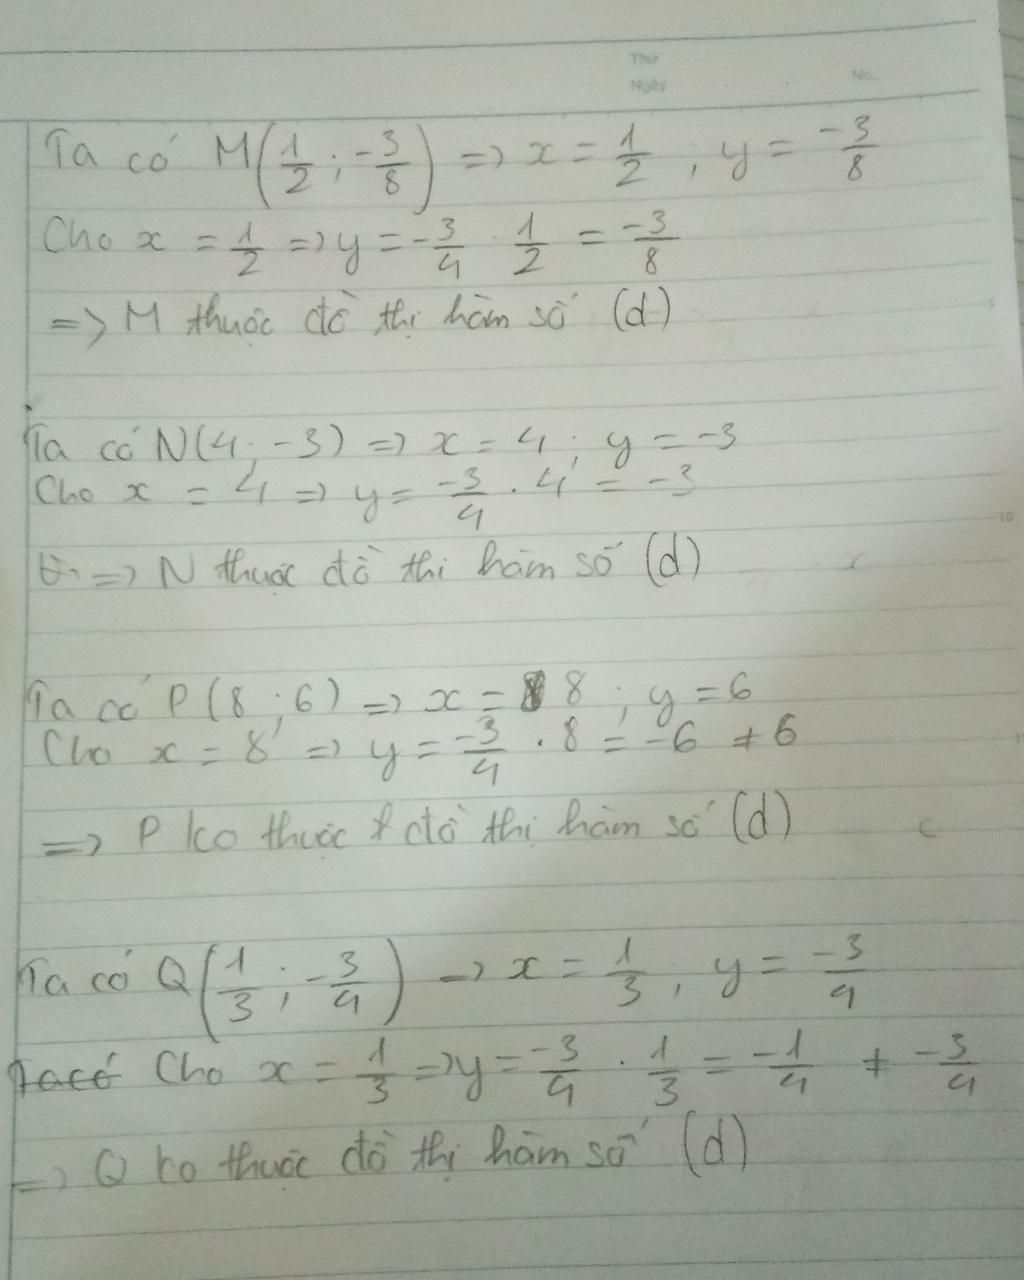 Thứ
Ngày
No.
Ta có M(1/2 ; -3/8) => x = 1/2 ; y = -3/8
Cho x = 1/2 => y = -3/4 . 1/2 = -3/8
=> M thuộc đồ thị hàm số (d)
Ta có N(4; -3) => x = 4 ; y = -3
Cho x = 4 => y = -3/4 . 4 = -3
=> N thuộc đồ thị hàm số (d)
10
Ta có P (8 ; 6) => x = 8 ; y = 6
Cho x = 8 => y = -3/4 . 8 = -6 ≠ 6
=> P ko thuộc đồ thị hàm số (d)
Ta có Q(1/3 ; -3/4) => x = 1/3 ; y = -3/4
Ta có Cho x = 1/3 => y = -3/4 . 1/3 = -1/4 ≠ -3/4
=> Q ko thuộc đồ thị hàm số (d)